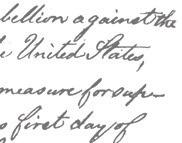 bellion against the
e United States,
measure for sup-
s first day of